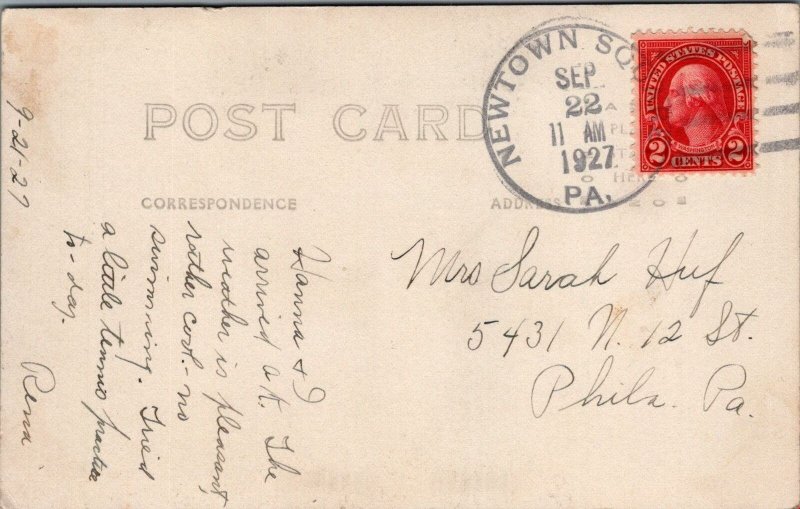 POST CARD
CORRESPONDENCE
ADDRESS
NEWTOWN SQU
SEP
22
11 AM
1927
PA.
UNITED STATES POSTAGE
WASHINGTON
2 CENTS 2
HERE
9-21-27
Hanna & I
arrived O.K. The
weather is pleasant,
rather cool - no
swimming. Tried
a little tennis practice
to-day.
Rena
Mrs Sarah Huf
5431 N. 12 St.
Phila. Pa.